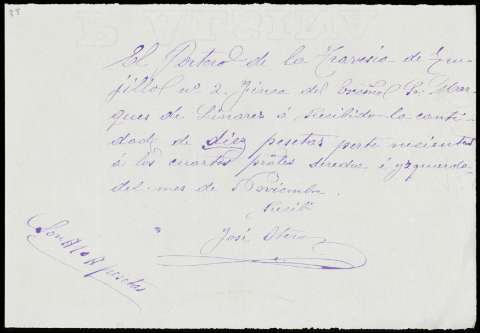 El Portero de la Travesia de Tru-
jillo nº 2. Finca del Escmo Sr. Mar-
ques de Linares á Recibido la canti-
dad de diez pesetas perte necientes
á los cuartos prales derecha é yzquerda
del mes de Noviembre.
Recibí
José Otero
Son #10# pesetas